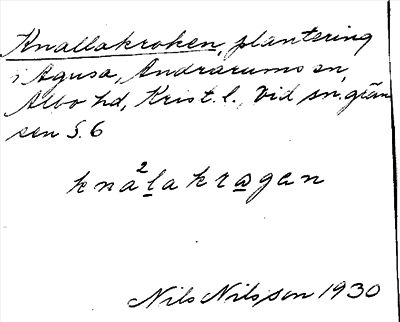 Knallakroken, plantering
i Agusa, Andrarums sn,
Albo hd, Krist. l., Vid sn.grän
sen S. 6
kna²lakrogen
Nils Nilsson 1930